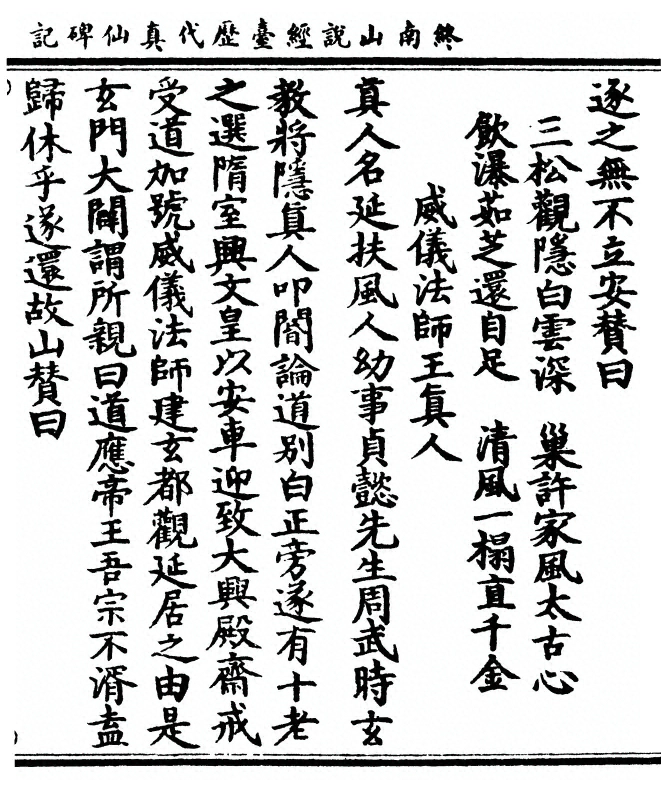 終南山說經臺歷代真仙碑記
逐之無不立安贊曰
三松觀隱白雲深　巢許家風太古心
飲瀑茹芝還自足　清風一榻直千金
威儀法師王眞人
眞人名延扶風人幼事貞懿先生周武時玄
教將隱眞人叩閽論道別白正旁遂有十老
之選隋室興文皇以安車迎致大興殿齋戒
受道加號威儀法師建玄都觀延居之由是
玄門大闡謂所親曰道應帝王吾宗不湑盍
歸休乎遂還故山贊曰